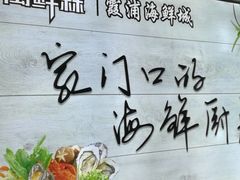 鲜森 霞浦海鲜城
家门口的
海鲜厨